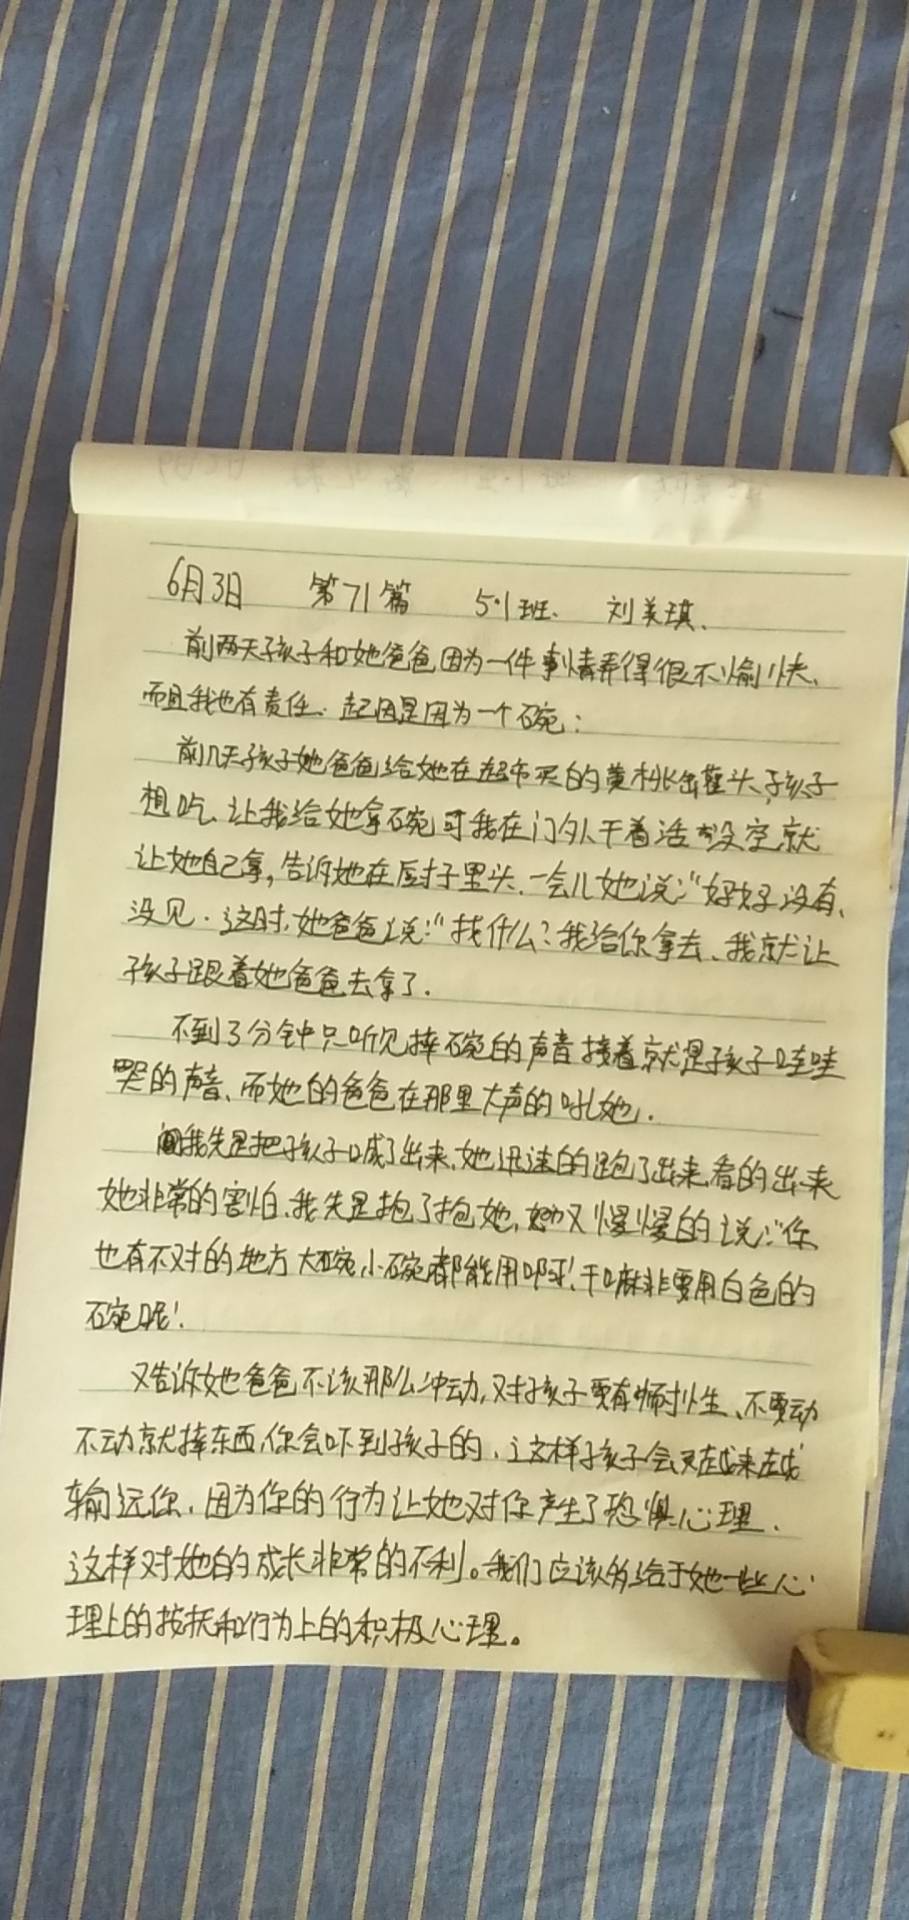 6月3日 第71篇 5.1班. 刘美琪.
前两天孩子和她爸爸因为一件事情弄得很不愉快、
而且我也有责任. 起因是因为一个碗:
前几天孩子她爸爸给她在超市买的黄桃罐头、孩子
想吃、让我给她拿碗可我在门外干着活 没空就
让她自己拿,告诉她在厨子里头. 一会儿她说:“好好 没有、
没见. 这时,她爸爸说:“找什么?我给你拿去、我就让
孩子跟着她爸爸去拿了.
不到3分钟只听见摔碗的声音接着就是孩子哇哇
哭的声音、而她的爸爸在那里大声的吼她.
我先是把孩子喊了出来、她迅速的跑了出来,看的出来
她非常的害怕、我先是抱了抱她,她又慢慢的说:“你
也有不对的地方 大碗、小碗都能用啊!干嘛非要用白色的
碗呢!
又告诉她爸爸不该那么冲动,对孩子要有耐性、不要动
不动就摔东西、你会吓到孩子的、这样孩子会 越来越
输远你、因为你的行为让她对你产生了恐惧心理.
这样对她的成长非常的不利。我们应该多给于她一些心
理上的按抚和行为上的积极心理。